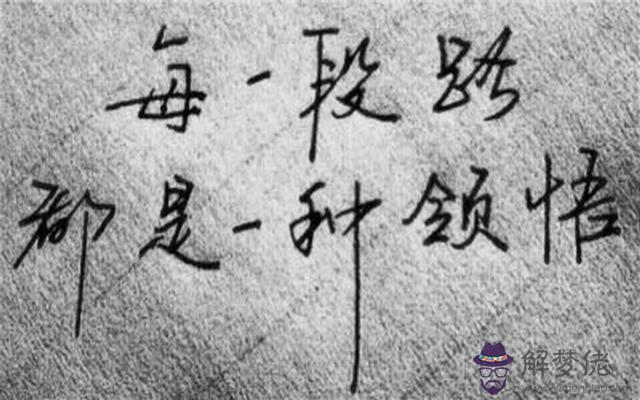 每一段路
都是一种领悟
解梦佬